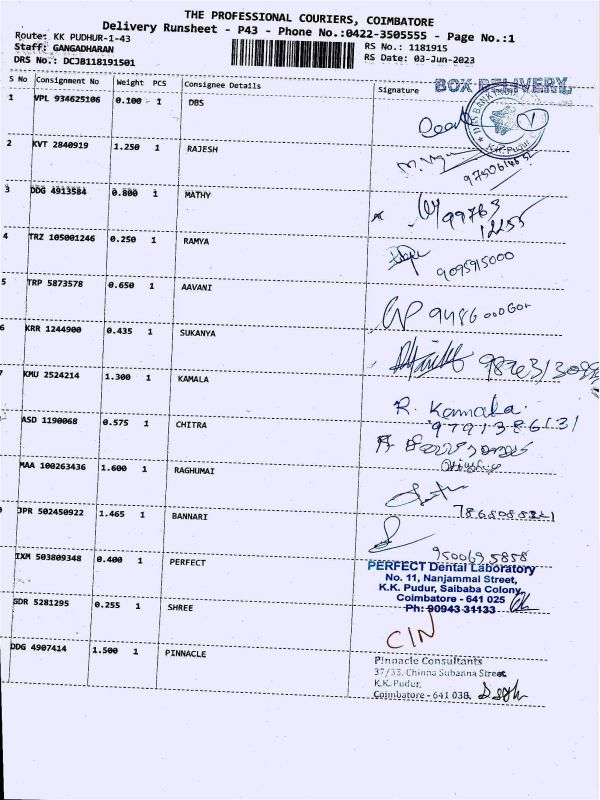 THE PROFESSIONAL COURIERS, COIMBATORE
Delivery Runsheet - P43 - Phone No.:0422-3505555 - Page No.:1
Route: KK PUDHUR-1-43
Staff: GANGADHARAN
DRS No.: DCJB118191501
RS No.: 1181915
RS Date: 03-Jun-2023
S No Consignment No Weight PCS Consignee Details Signature BOX DELIVERY
1 VPL 934625106 0.100 1 DBS
K.K. Pudur
2 KVT 2840919 1.250 1 RAJESH
3 DDG 4913584 0.800 1 MATHY 99763
12255
4 TRZ 105001246 0.250 1 RAMYA
9095915000
5 TRP 5873578 0.650 1 AAVANI
6 KRR 1244900 0.435 1 SUKANYA
7 KMU 2524214 1.300 1 KAMALA R. Kamala
9791386131
ASD 1190068 0.575 1 CHITRA
MAA 100263436 1.600 1 RAGHUMAI
JPR 502450922 1.465 1 BANNARI
9500695858
IXM 503809348 0.400 1 PERFECT
PERFECT Dental Laboratory
No. 11, Nanjammal Street,
K.K. Pudur, Saibaba Colony,
Coimbatore - 641 025
Ph: 90943 31133
SDR 5281295 0.255 1 SHREE
CIN
DDG 4907414 1.500 1 PINNACLE
Pinnacle Consultants
37/33, Chinna Subanna Street
K.K. Pudur,
Coimbatore - 641 038.